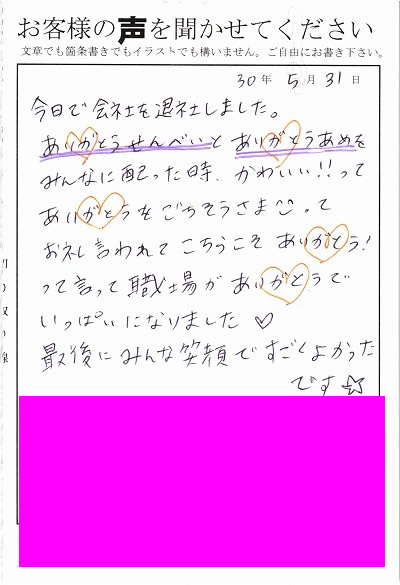 お客様の声を聞かせてください
文章でも箇条書きでもイラストでも構いません。ご自由にお書き下さい。
30年 5月 31日
今日で会社を退社しました。
ありがとうせんべいと ありがとうあめを
みんなに配った時、かわいい!!って
ありがとうをごちそうさま って
お礼言われて こちらこそ ありがとう!
って言って 職場が ありがとうで
いっぱいになりました♡
最後に みんな笑顔で すごくよかった
です☆